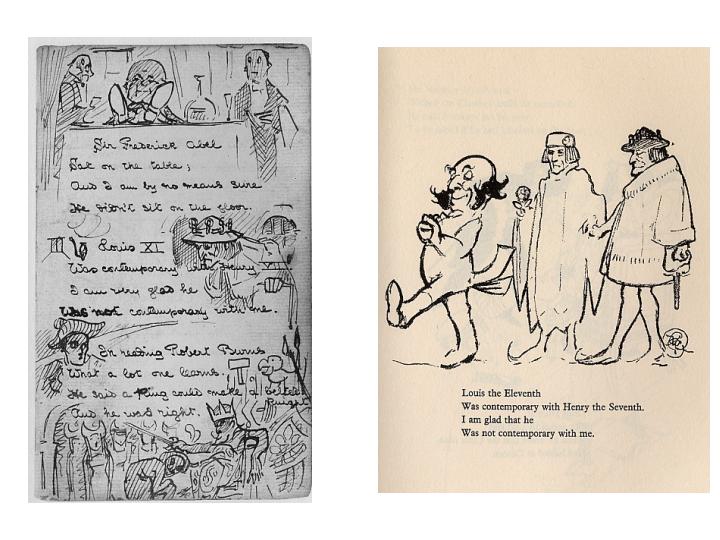 Sir Frederick Abel
Sat on the table;
And I am by no means sure
He didn't sit on the floor.
Louis XI
Was contemporary with Henry VII
I am very glad he
Was not contemporary with me.
In reading Robert Burns
What a lot one learns.
He said a King could make a belted Knight
And he was right.
Louis the Eleventh
Was contemporary with Henry the Seventh.
I am glad that he
Was not contemporary with me.